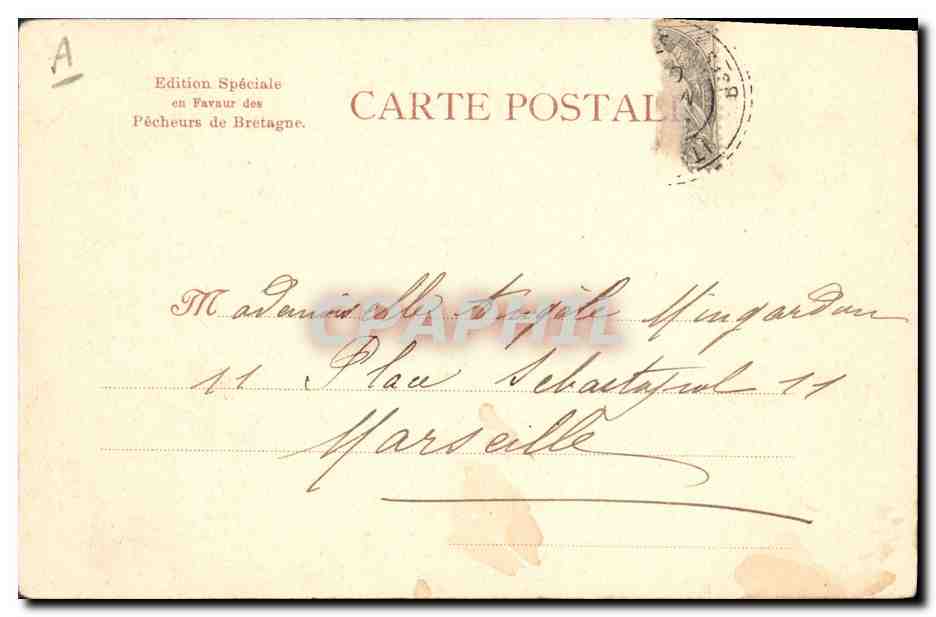 A
Edition Spéciale
en Favaur des
Pêcheurs de Bretagne.
CARTE POSTALE
Mademoiselle Angèle Mingardon
11 Place Sébastopol 11
Marseille
CPAPHIL